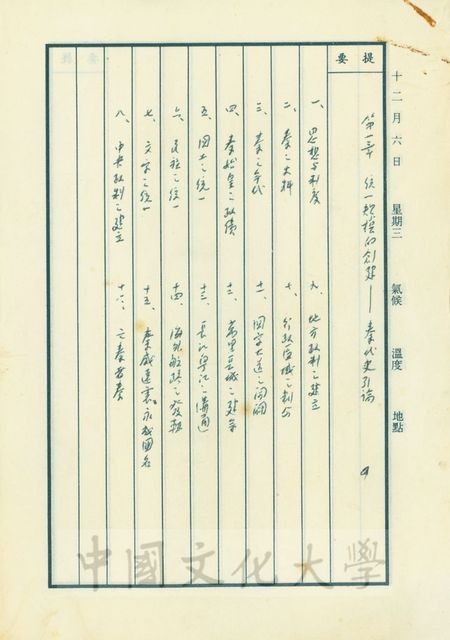 十二月六日 星期三 氣候 溫度 地點
提要
第一章 統一規模的創建——秦代史引論
一、思想与制度
二、秦之史料
三、秦之年代
四、秦始皇之政績
五、国土之統一
六、民族之統一
七、文字之統一
八、中央政制之建立
九、地方政制之建立
十、行政區域之劃分
十一、国家大道之開闢
十二、萬里長城之建築
十三、長江與珠江之溝通
十四、海外航路之發動
十五、秦威遠震，永我國名
十六、亡秦者秦
中國文化大學